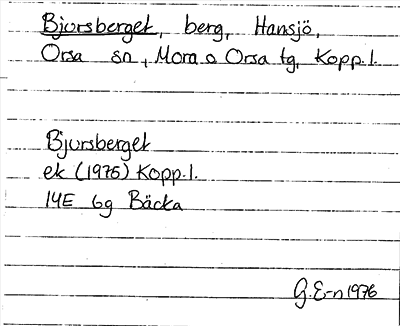 Bjursberget, berg, Hansjö,
Orsa sn, Mora o Orsa tg, Kopp.l.
Bjursberget
ek (1975) Kopp.l.
14E 6g Bäcka
G.E-n 1976